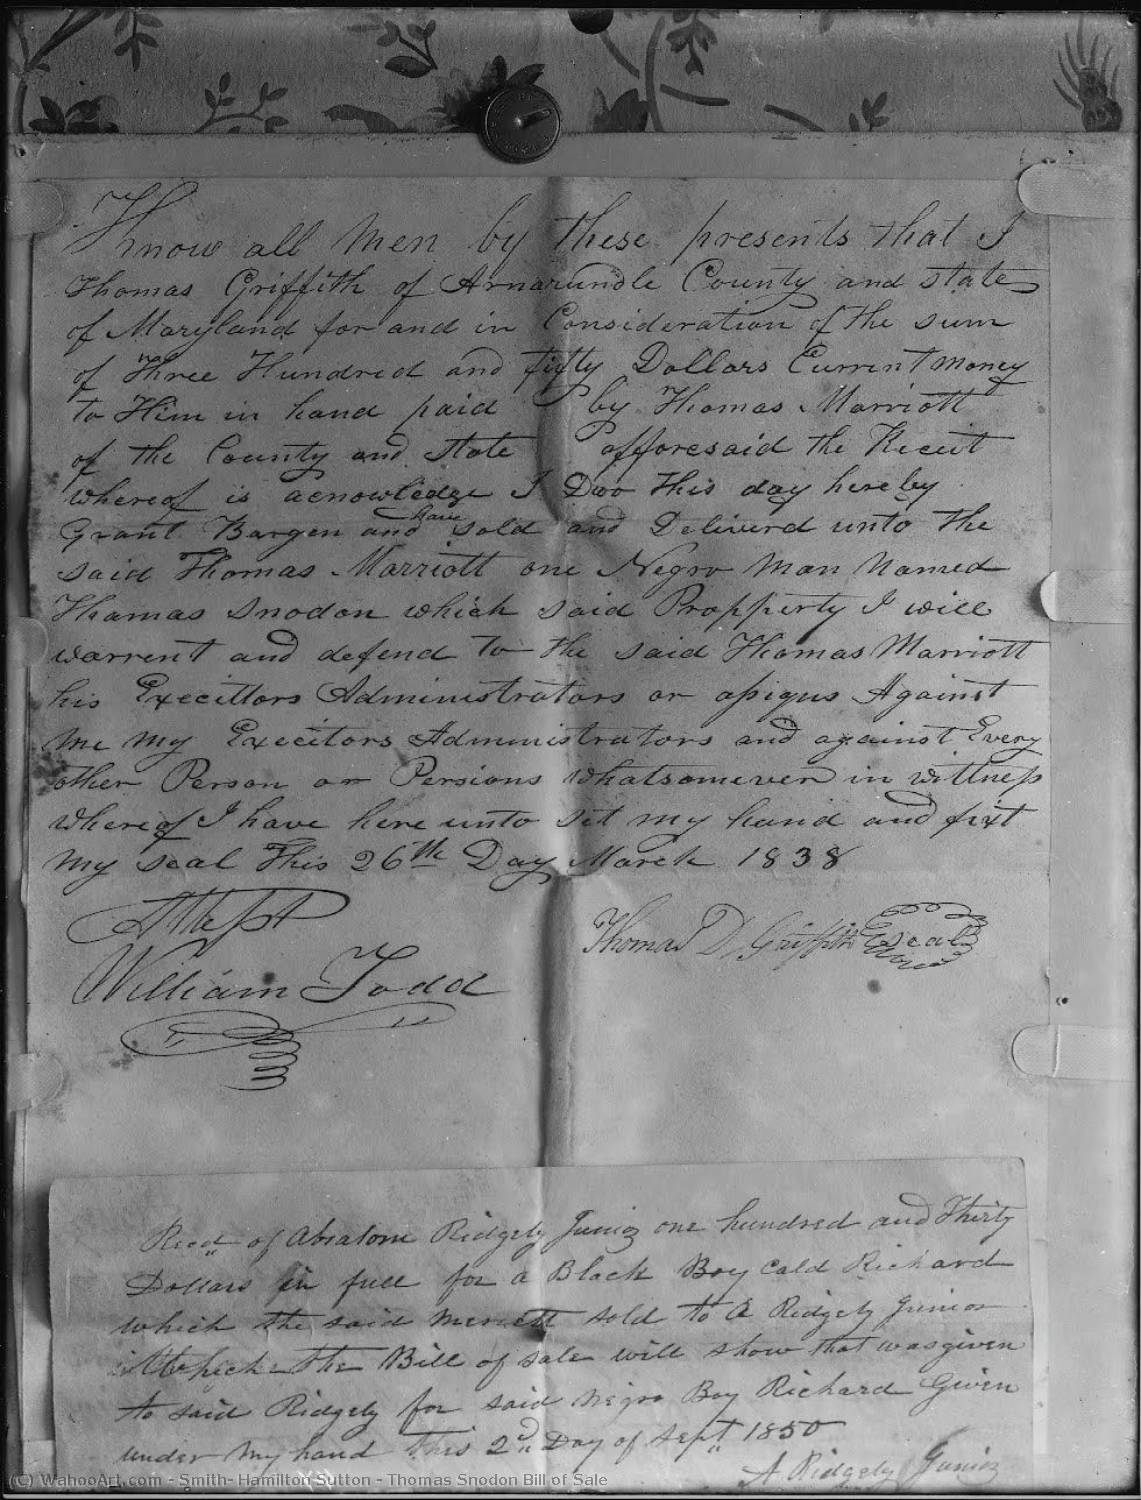 Know all Men by these presents that I
Thomas Griffith of Annarundle County and state
of Maryland for and in Consideration of the sum
of Three Hundred and fifty Dollars Current money
to Him in hand paid by Thomas Marriott
of the County and State afforesaid the Receit
whereof is acnowledge I Doo this day hereby
Grant Bargen and have sold and Deliverd unto the
said Thomas Marriott one Negro Man Named
Thomas Snodon which said Propperty I will
warrent and defend to the said Thomas Marriott
his Execittors Administrators or assigns Against
me my Execitors Administrators and against Every
other Person or Persions whatsomever in wittness
whereof I have here unto set my hand and fixt
my seal This 26th Day March 1838
Attest
Thomas D Griffith Seal
William Todd
Recd of Absalom Ridgely Junior one hundred and Thirty
Dollars in full for a Black Boy Cald Richard
which the said sold to A Ridgely Junior
the Bill of sale will show that was given
to said Ridgely for said Negro Boy Richard Given
under my hand this 2nd Day of Sept 1850
A Ridgely Junior
(C) WahooArt.com - Smith- Hamilton Sutton - Thomas Snodon Bill of Sale